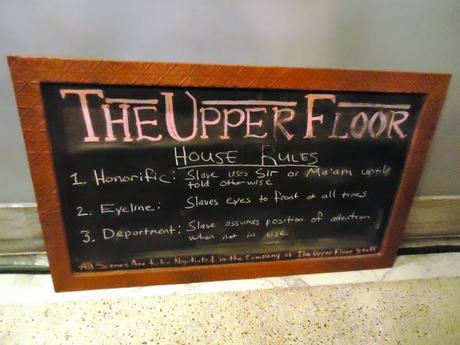 THE UPPER FLOOR
HOUSE RULES
1. Honorific: Slave uses Sir or Ma'am until
told otherwise
2. Eyeline: Slaves eyes to front at all times
3. Deportment: Slave assumes position of attention
when not in use.
All Scenes Are to be Negotiated in the Company of The Upper Floor Staff